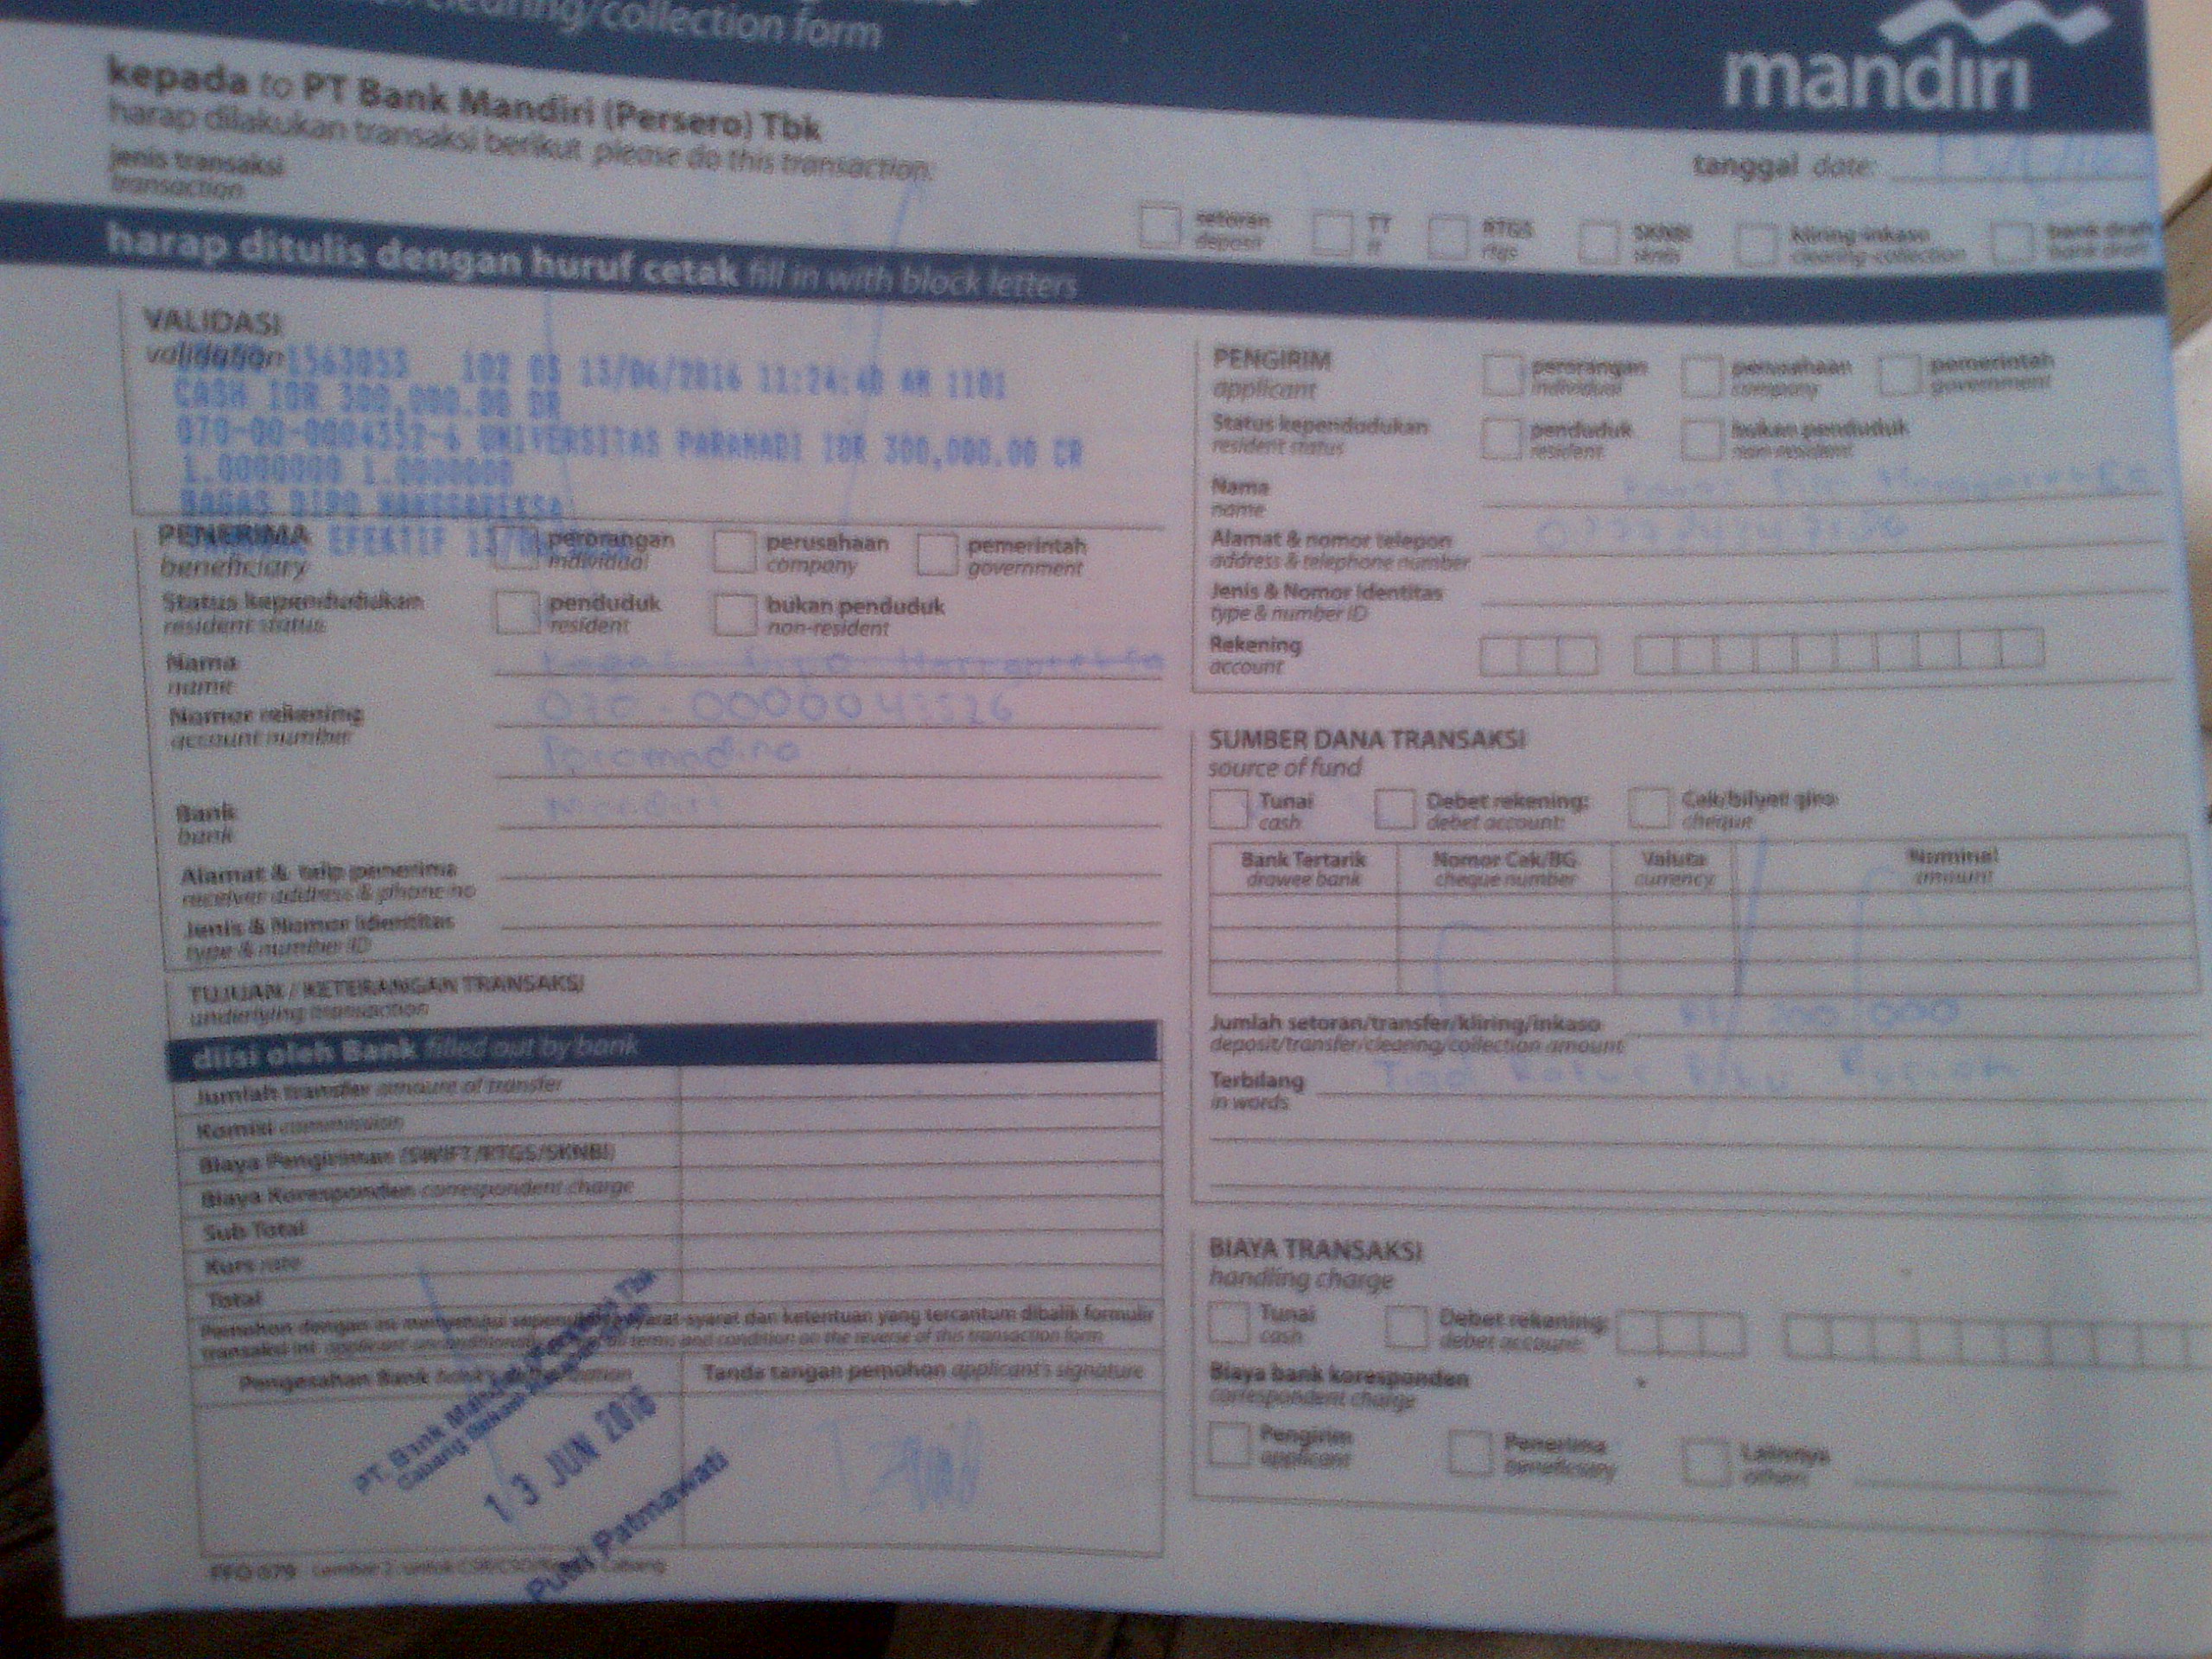 clearing/collection form
mandiri
kepada to PT Bank Mandiri (Persero) Tbk
harap dilakukan transaksi berikut please do this transaction:
tanggal date:
jenis transaksi
transaction
setoran
deposit
TT
tt
RTGS
rtgs
SKNBI
sknbi
kliring-inkaso
clearing-collection
bank draft
bank draft
harap ditulis dengan huruf cetak fill in with block letters
VALIDASI
validation
1563053 102 03 13/06/2016 11:24:40 AM 1101
CASH IDR 300,000.00 DR
070-00-0004352-6 UNIVERSITAS PARAMADI IDR 300,000.00 CR
1.0000000 1.0000000
BAGAS DIPO
EFEKTIF
PENERIMA
beneficiary
perorangan
individual
perusahaan
company
pemerintah
government
Status kependudukan
resident status
penduduk
resident
bukan penduduk
non-resident
Nama
name
Nomor rekening
account number
Paramadina
Bank
bank
Mandiri
Alamat & telp penerima
receiver address & phone no
Jenis & Nomor Identitas
type & number ID
TUJUAN / KETERANGAN TRANSAKSI
underlying transaction
diisi oleh Bank filled out by bank
Jumlah transfer amount of transfer
Komisi commission
Biaya Pengiriman (SWIFT/RTGS/SKNBI)
Biaya Koresponden correspondent charge
Sub Total
Kurs rate
Total
Pemohon dengan ini menyetujui syarat-syarat dan ketentuan yang tercantum dibalik formulir
transaksi ini applicant terms and condition on the reverse of this transaction form
Pengesahan Bank
Tanda tangan pemohon applicant's signature
PT. Bank Tbk
Cabang
13 JUN 2016
Putri Patmawati
FFO 079 Lembar 2: untuk Cabang
PENGIRIM
applicant
perorangan
individual
perusahaan
company
pemerintah
government
Status kependudukan
resident status
penduduk
resident
bukan penduduk
non-resident
Nama
name
Alamat & nomor telepon
address & telephone number
Jenis & Nomor Identitas
type & number ID
Rekening
account
SUMBER DANA TRANSAKSI
source of fund
Tunai
cash
Debet rekening:
debet account:
Cek/bilyet giro
cheque
Bank Tertarik
drawee bank
Nomor Cek/BG
cheque number
Valuta
currency
Nominal
amount
Jumlah setoran/transfer/kliring/inkaso
deposit/transfer/clearing/collection amount
Terbilang Tiga Ratus Ribu Rupiah
in words
BIAYA TRANSAKSI
handling charge
Tunai
cash
Debet rekening:
debet account:
Biaya bank koresponden
correspondent charge
Pengirim
applicant
Penerima
beneficiary
Lainnya
others